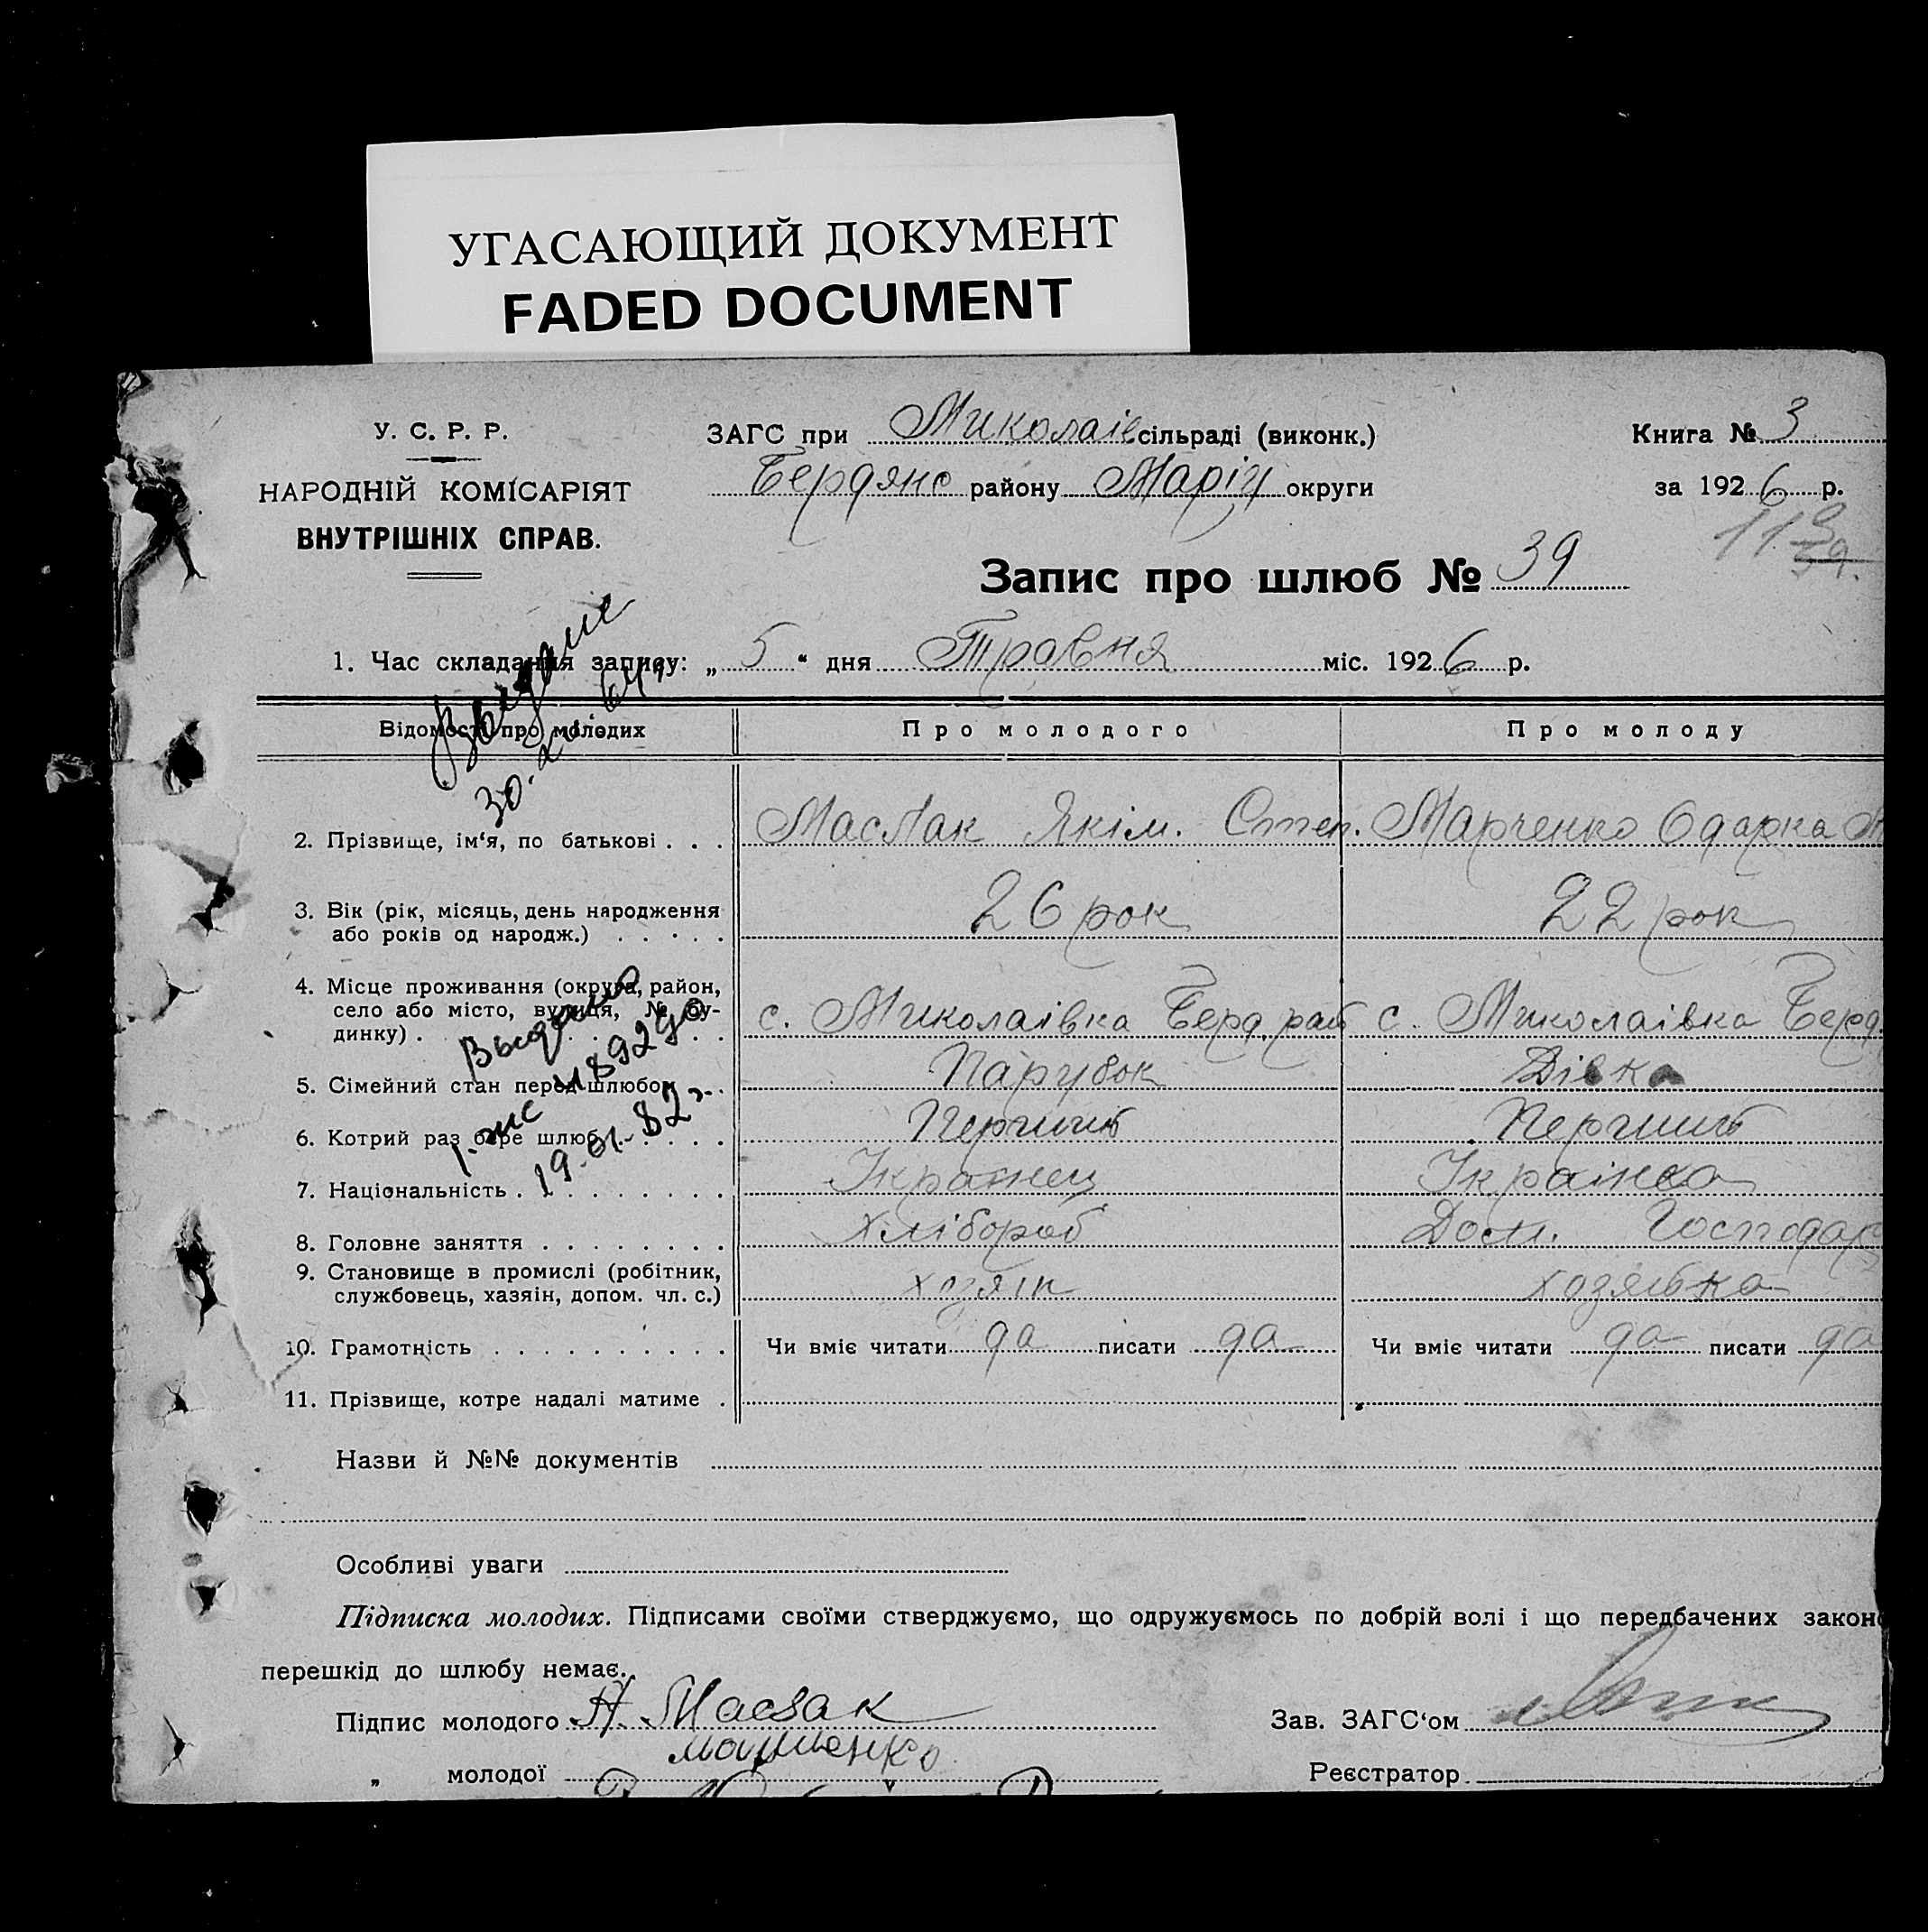 УГАСАЮЩИЙ ДОКУМЕНТ
FADED DOCUMENT
У. С. Р. Р.
НАРОДНІЙ КОМІСАРІЯТ
ВНУТРІШНІХ СПРАВ.
ЗАГС при Миколаів сільраді (виконк.)
Бердянс району Маріу округи
Книга № 3
за 1926 р.
Запис про шлюб № 39
113
39.
1. Час складання запису: „ 5 “ дня Травня міс. 1926 р.
Відомості про молодих Про молодого Про молоду
2. Прізвище, ім‘я, по батькові . . . Маслак Якім. Степ. Марченко Одарка
3. Вік (рік, місяць, день народження 26 рок 22 рок
або років од народж.) . . . . .
4. Місце проживання (округа, район,
село або місто, вулиця, № бу- с. Миколаівка Берд. рай с. Миколаівка Берд.
динку) . . . . . . . .
5. Сімейний стан перед шлюбом . . Парубок Дівка
6. Котрий раз бере шлюб . . . . Перший Перший
7. Національність . . . . . . . . Украінец Украінка
8. Головне заняття . . . . . . . . хлібороб Дом. Господар
9. Становище в промислі (робітник,
службовець, хазяін, допом. чл. с.) хозяін хозяйка
10. Грамотність . . . . . . . . . . Чи вміє читати да писати да Чи вміє читати да писати да
11. Прізвище, котре надалі матиме .
Выдано
30.
Выдано
489290
19.01.82г.
Назви й №№ документів
Особливі уваги
Підписка молодих. Підписами своїми стверджуємо, що одружуємось по добрій волі і що передбачених законо
перешкід до шлюбу немає.
Підпис молодого Маслак Зав. ЗАГС‘ом
„ молодої Марченко Реєстратор